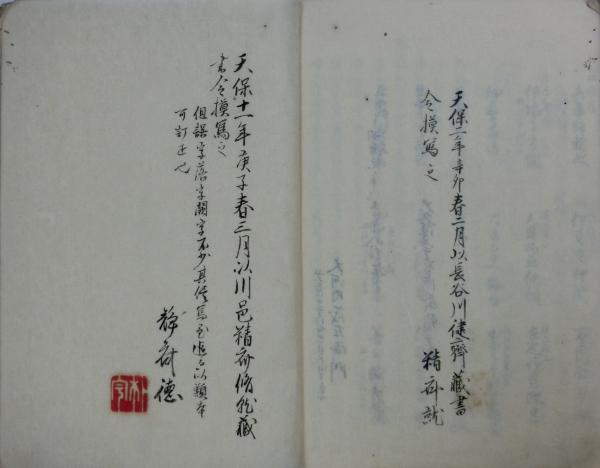 天保二年辛卯春二月以長谷川健齊藏書
令摸寫之
精斎就
天保十一年庚子春三月以川邑精斎脩就藏
書令摸寫之
但誤字落字闕字不少其儘写 以類本
可訂正也
静斎徳